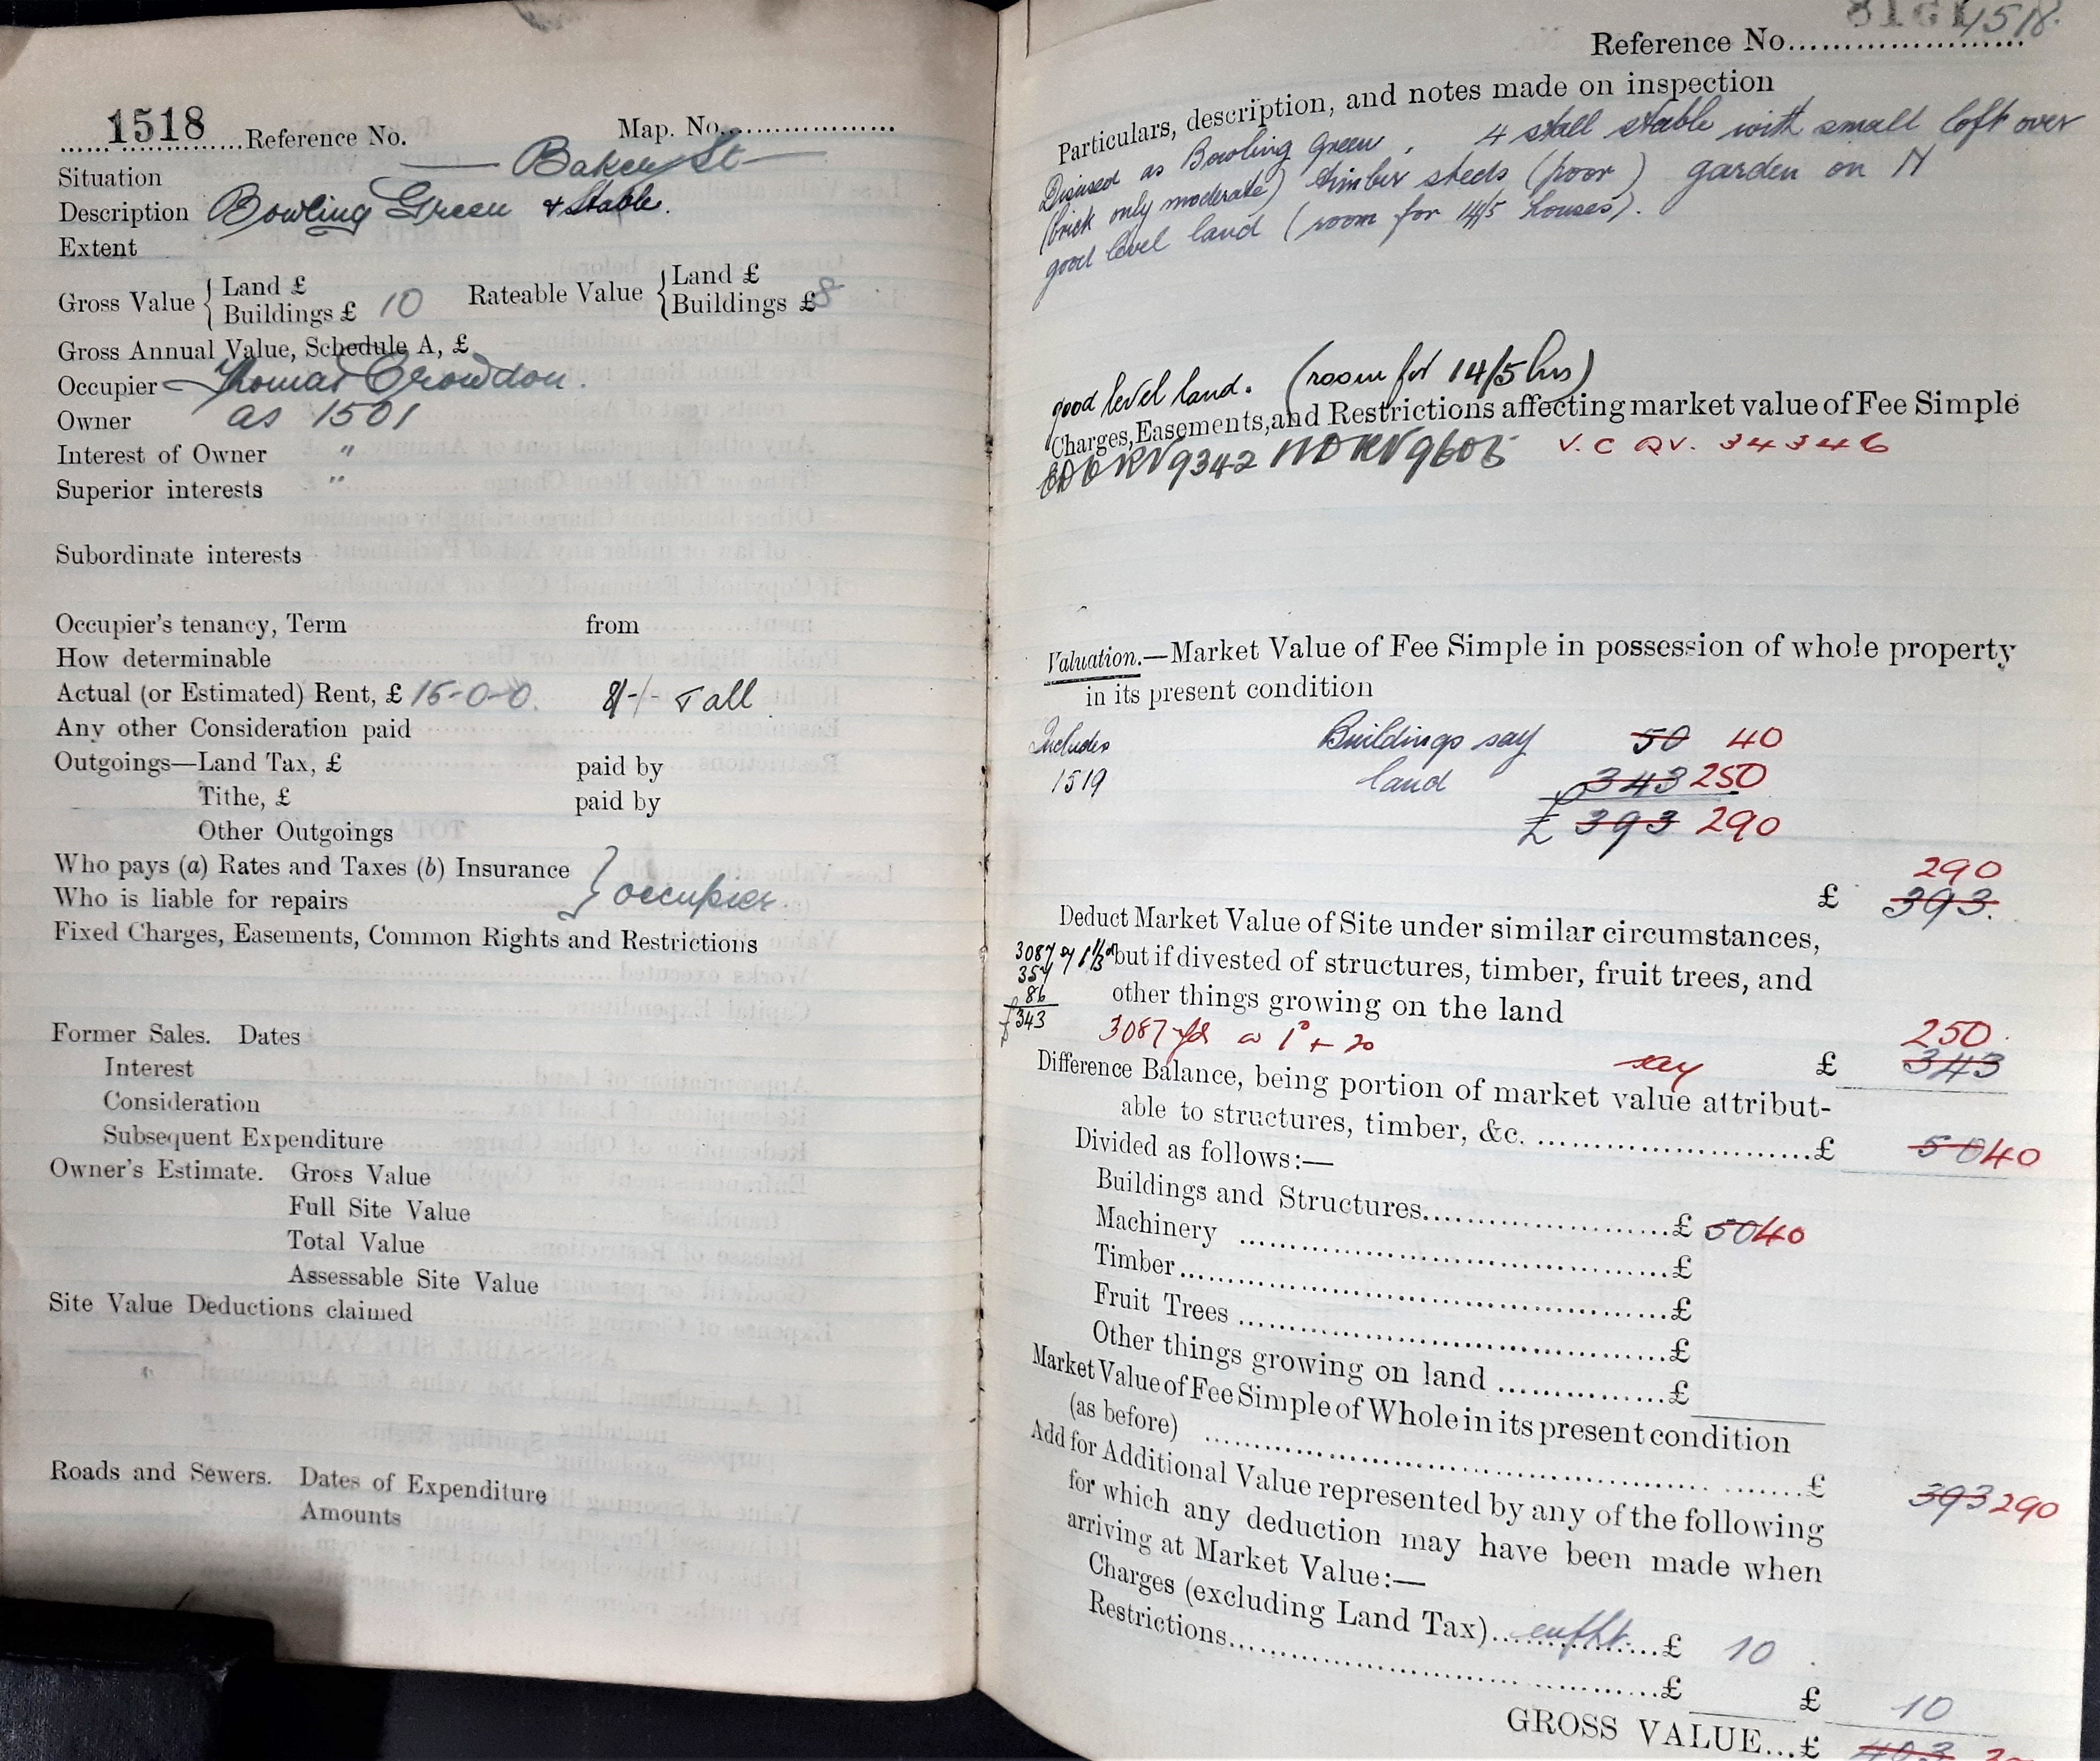 1518 Reference No. Map. No.
Situation — Baker St —
Description Bowling Green & Stable.
Extent
Gross Value { Land £
Buildings £ 10
Rateable Value { Land £
Buildings £ 8
Gross Annual Value, Schedule A, £
Occupier — Thomas Crowdon.
Owner as 1501
Interest of Owner "
Superior interests "
Subordinate interests
Occupier's tenancy, Term from
How determinable
Actual (or Estimated) Rent, £ 15-0-0.
Any other Consideration paid
Outgoings—Land Tax, £ paid by
Tithe, £ paid by
Other Outgoings
Who pays (a) Rates and Taxes (b) Insurance }
Who is liable for repairs } occupier.
Fixed Charges, Easements, Common Rights and Restrictions
Former Sales. Dates
Interest
Consideration
Subsequent Expenditure
Owner's Estimate. Gross Value
Full Site Value
Total Value
Assessable Site Value
Site Value Deductions claimed
Roads and Sewers. Dates of Expenditure
Amounts
Reference No. 1518.
Particulars, description, and notes made on inspection
Disused as Bowling Green. 4 stall stable with small loft over
(brick only moderate) timber sheds (poor) garden on N
good level land (room for 14/5 houses).
good level land. (room for 14/5 hrs)
Charges, Easements, and Restrictions affecting market value of Fee Simple
9342 9605 V.C QV. 34346
Valuation.—Market Value of Fee Simple in possession of whole property
in its present condition
Includes Buildings say 50 40
1519 land 343 250
£ 393 290
290
£ 393.
Deduct Market Value of Site under similar circumstances,
3087 but if divested of structures, timber, fruit trees, and
86 other things growing on the land
£343
3087 yds @ 1/- + 20
250.
say £ 343
Difference Balance, being portion of market value attribut-
able to structures, timber, &c. £ 50 40
Divided as follows:—
Buildings and Structures £ 50 40
Machinery £
Timber £
Fruit Trees £
Other things growing on land £
Market Value of Fee Simple of Whole in its present condition
(as before) £ 393 290
Add for Additional Value represented by any of the following
for which any deduction may have been made when
arriving at Market Value:—
Charges (excluding Land Tax) £ 10
Restrictions £
£ 10
GROSS VALUE...£ 403